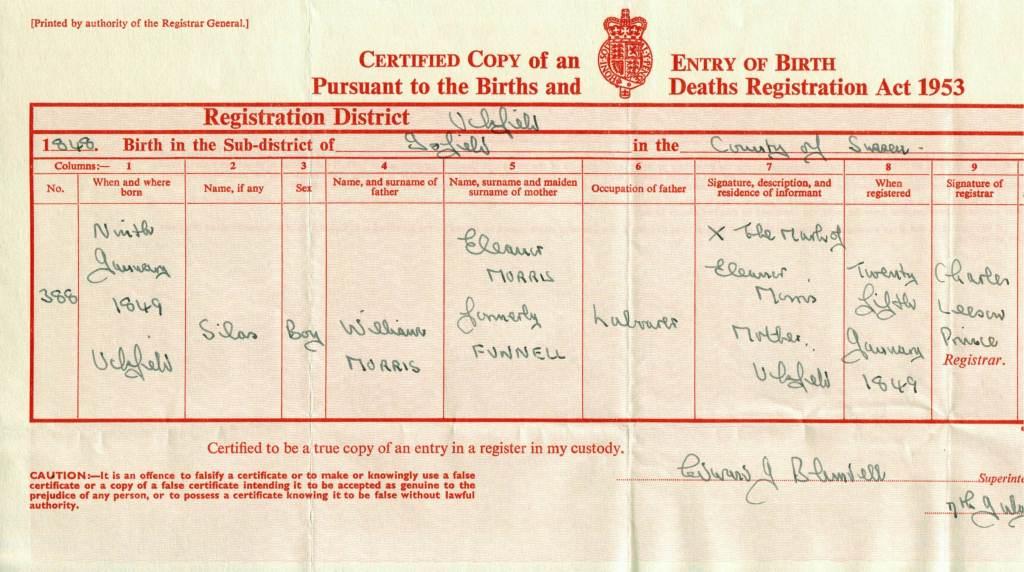 [Printed by authority of the Registrar General.]
CERTIFIED COPY of an ENTRY OF BIRTH
Pursuant to the Births and Deaths Registration Act 1953
Registration District Uckfield
1848. Birth in the Sub-district of in the County of Sussex
Columns:— 1 2 3 4 5 6 7 8 9
No. When and where born Name, if any Sex Name, and surname of father Name, surname and maiden surname of mother Occupation of father Signature, description, and residence of informant When registered Signature of registrar
388
Ninth
January
1849
Uckfield
Silas
Boy
William
MORRIS
Eleanor
MORRIS
formerly
FUNNELL
Labourer
X The Mark of
Eleanor
Morris
Mother.
Uckfield
Twenty
fifth
January
1849
Charles
Leeson
Prince
Registrar.
Certified to be a true copy of an entry in a register in my custody.
CAUTION:—It is an offence to falsify a certificate or to make or knowingly use a false
certificate or a copy of a false certificate intending it to be accepted as genuine to the
prejudice of any person, or to possess a certificate knowing it to be false without lawful
authority.
J Blundell
Superinte
7th July